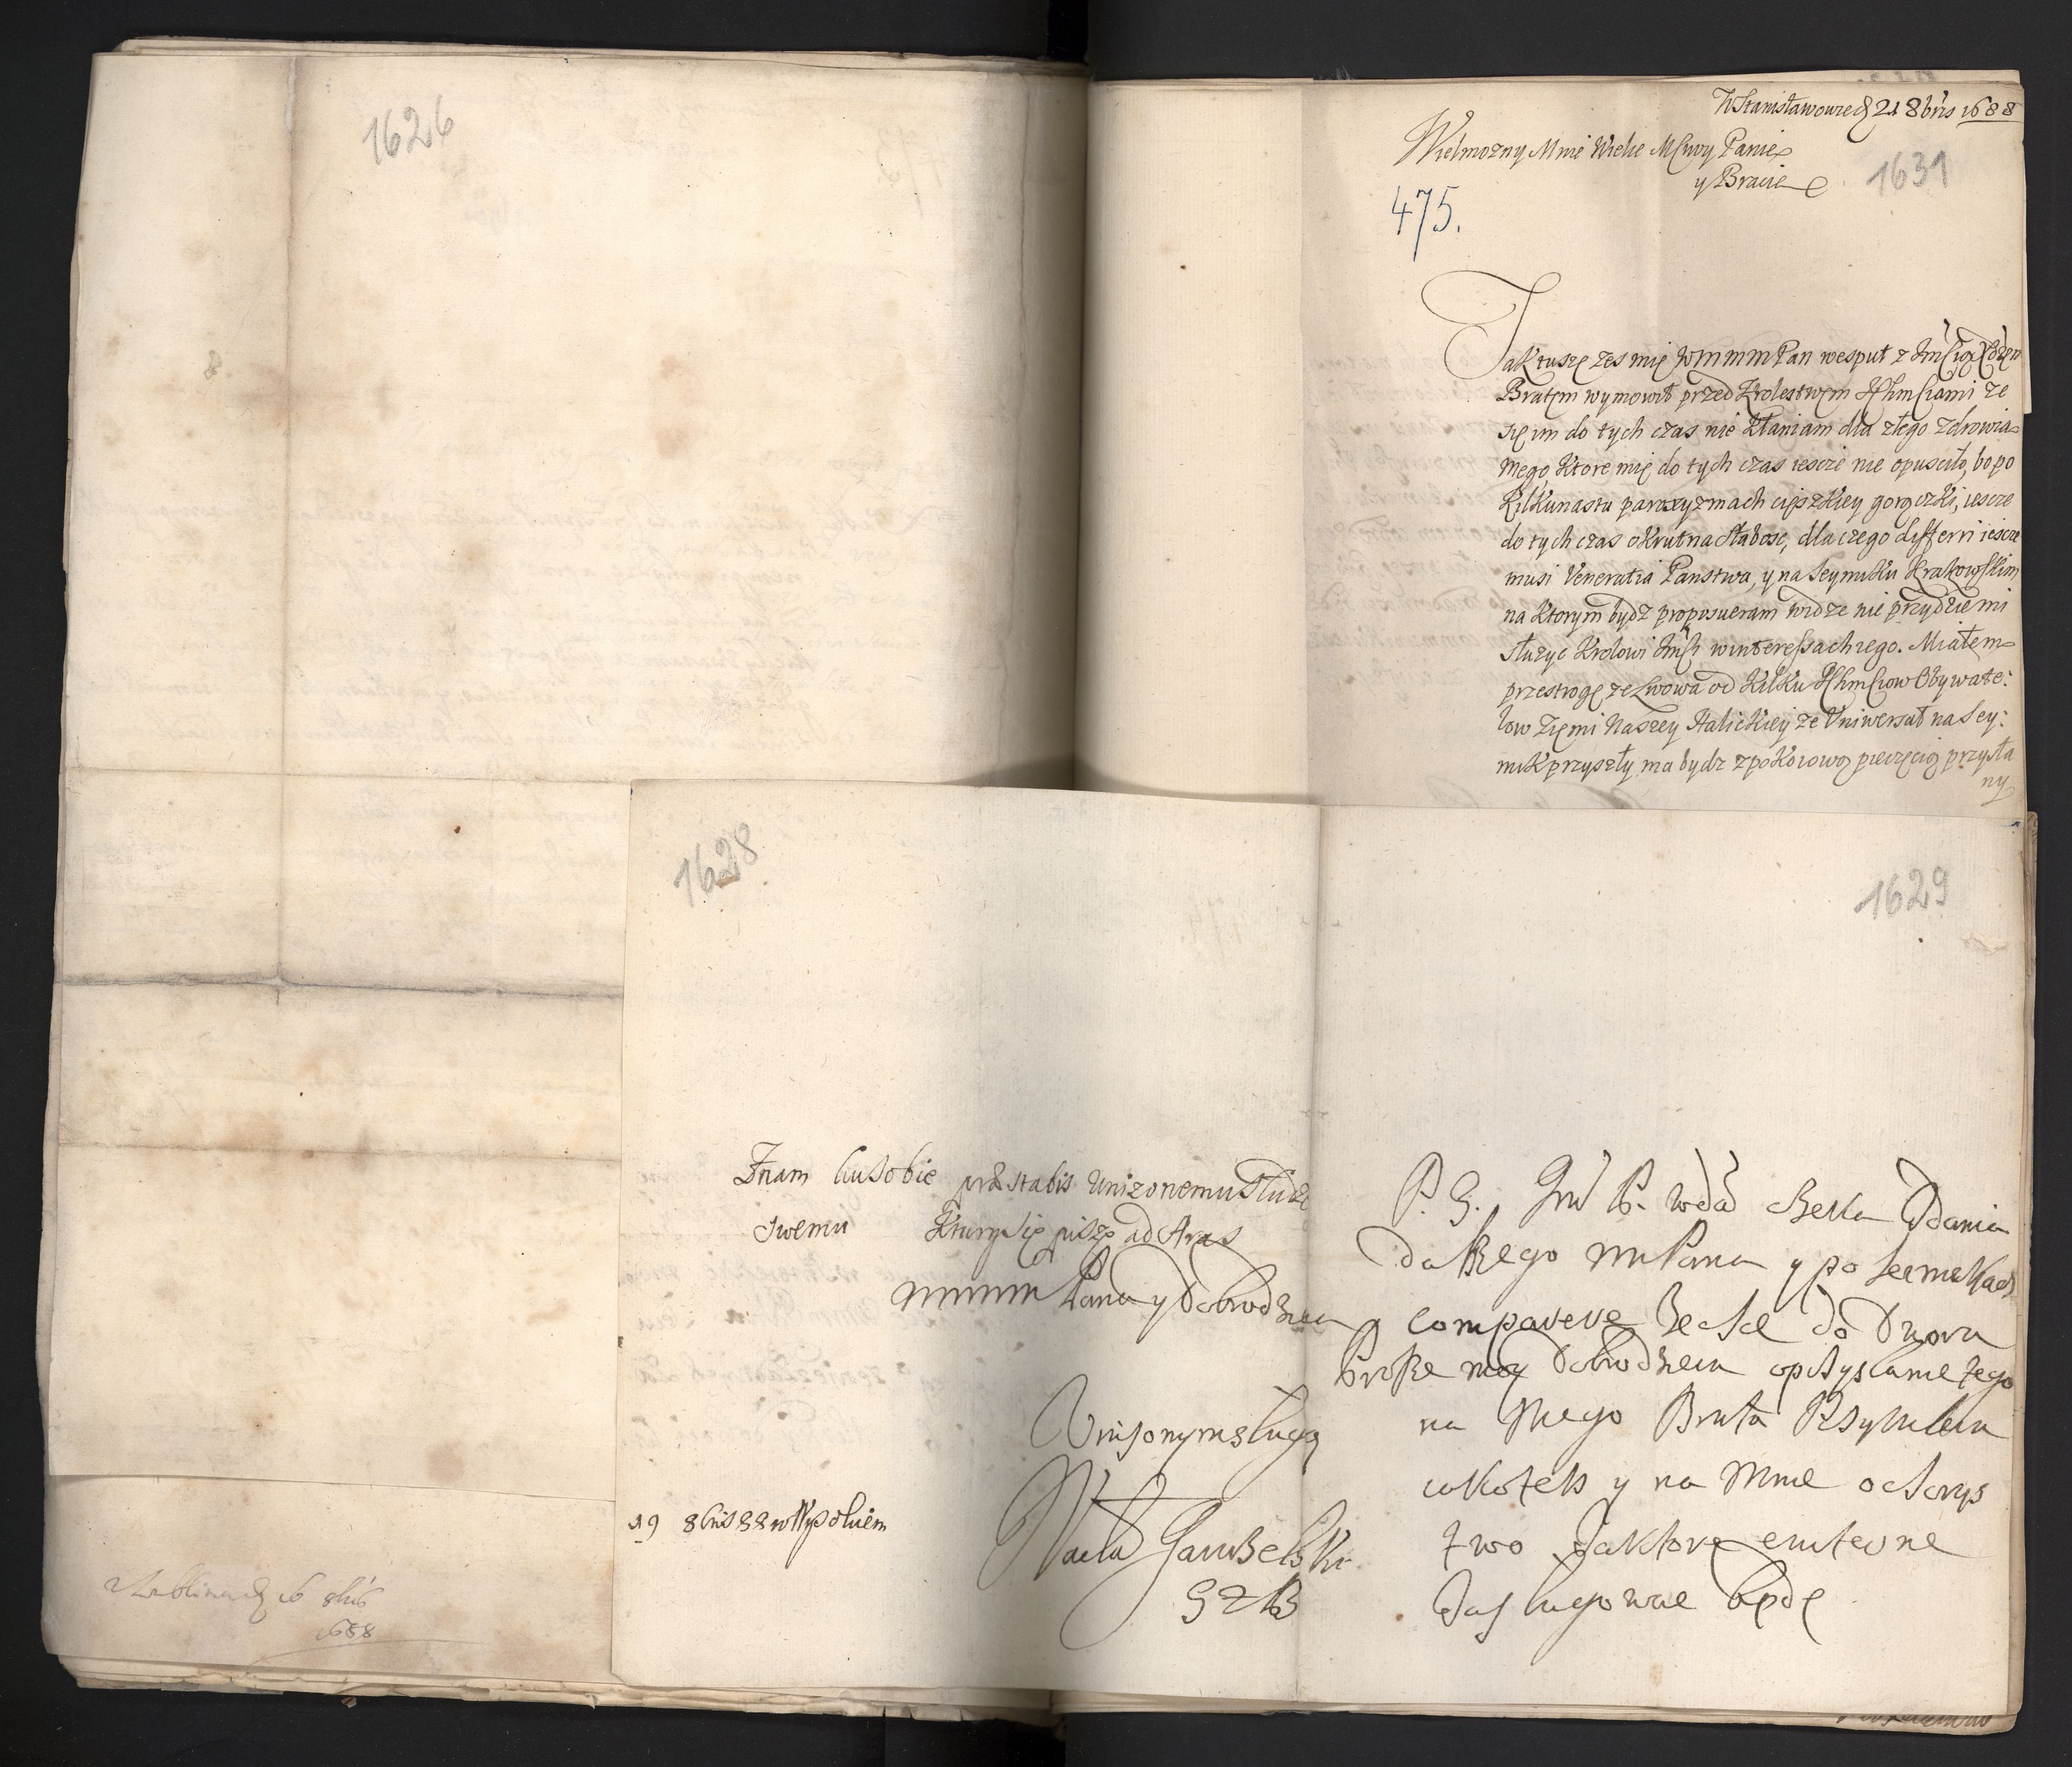 1626
W Stanisławowie d 21 8bris 1688
Wielmozny Mnie Wielce Mśćwy Panie
y Bracie
1631
475.
Jak tuszę zes mię WMMMPan wespuł z
Bratem wymowił przed Krolestwem Ichmściami ze
się im do tych czas nie kłaniam dla złego zdrowia
mego, ktore mię do tych czas iescze nie opusciło, bo po
kilkunastu paroxyzmach cięszkiey gorączki, iescze
do tych czas okrutna słabosc, dla czego differri iescze
musi Veneratia Panstwa, y na Seymiku Krakowskim
na ktorym bydz proposueram widze nie przydzie mi
słuzyc Krolowi Jmśći w interessach iego. Miałem
przestrogę ze Lwowa od kilku Ichmściow Obywate:
low Ziemi Naszey Halickiey ze Uniwersał na Sey:
mik przyszły ma bydz z pokoiową pieczęcią przysła
ny
1628
1629
Znam
præstabis unizonemu słudze
swemu ktury się piszę ad Aras
mmmm Pana y Dobrodzieia
Unizonym sługą
19 8bris 88 w Wysokiem
P. S. Jmć P. czeka zdania
daszego mPana y po Seimikach
comparere zechce do Dwora
Prosze moy Dobrodzieiu
na mego Brata
y na mnie
two za ktore
zasługowac będę
w Lublinie d 16 8bris
1688